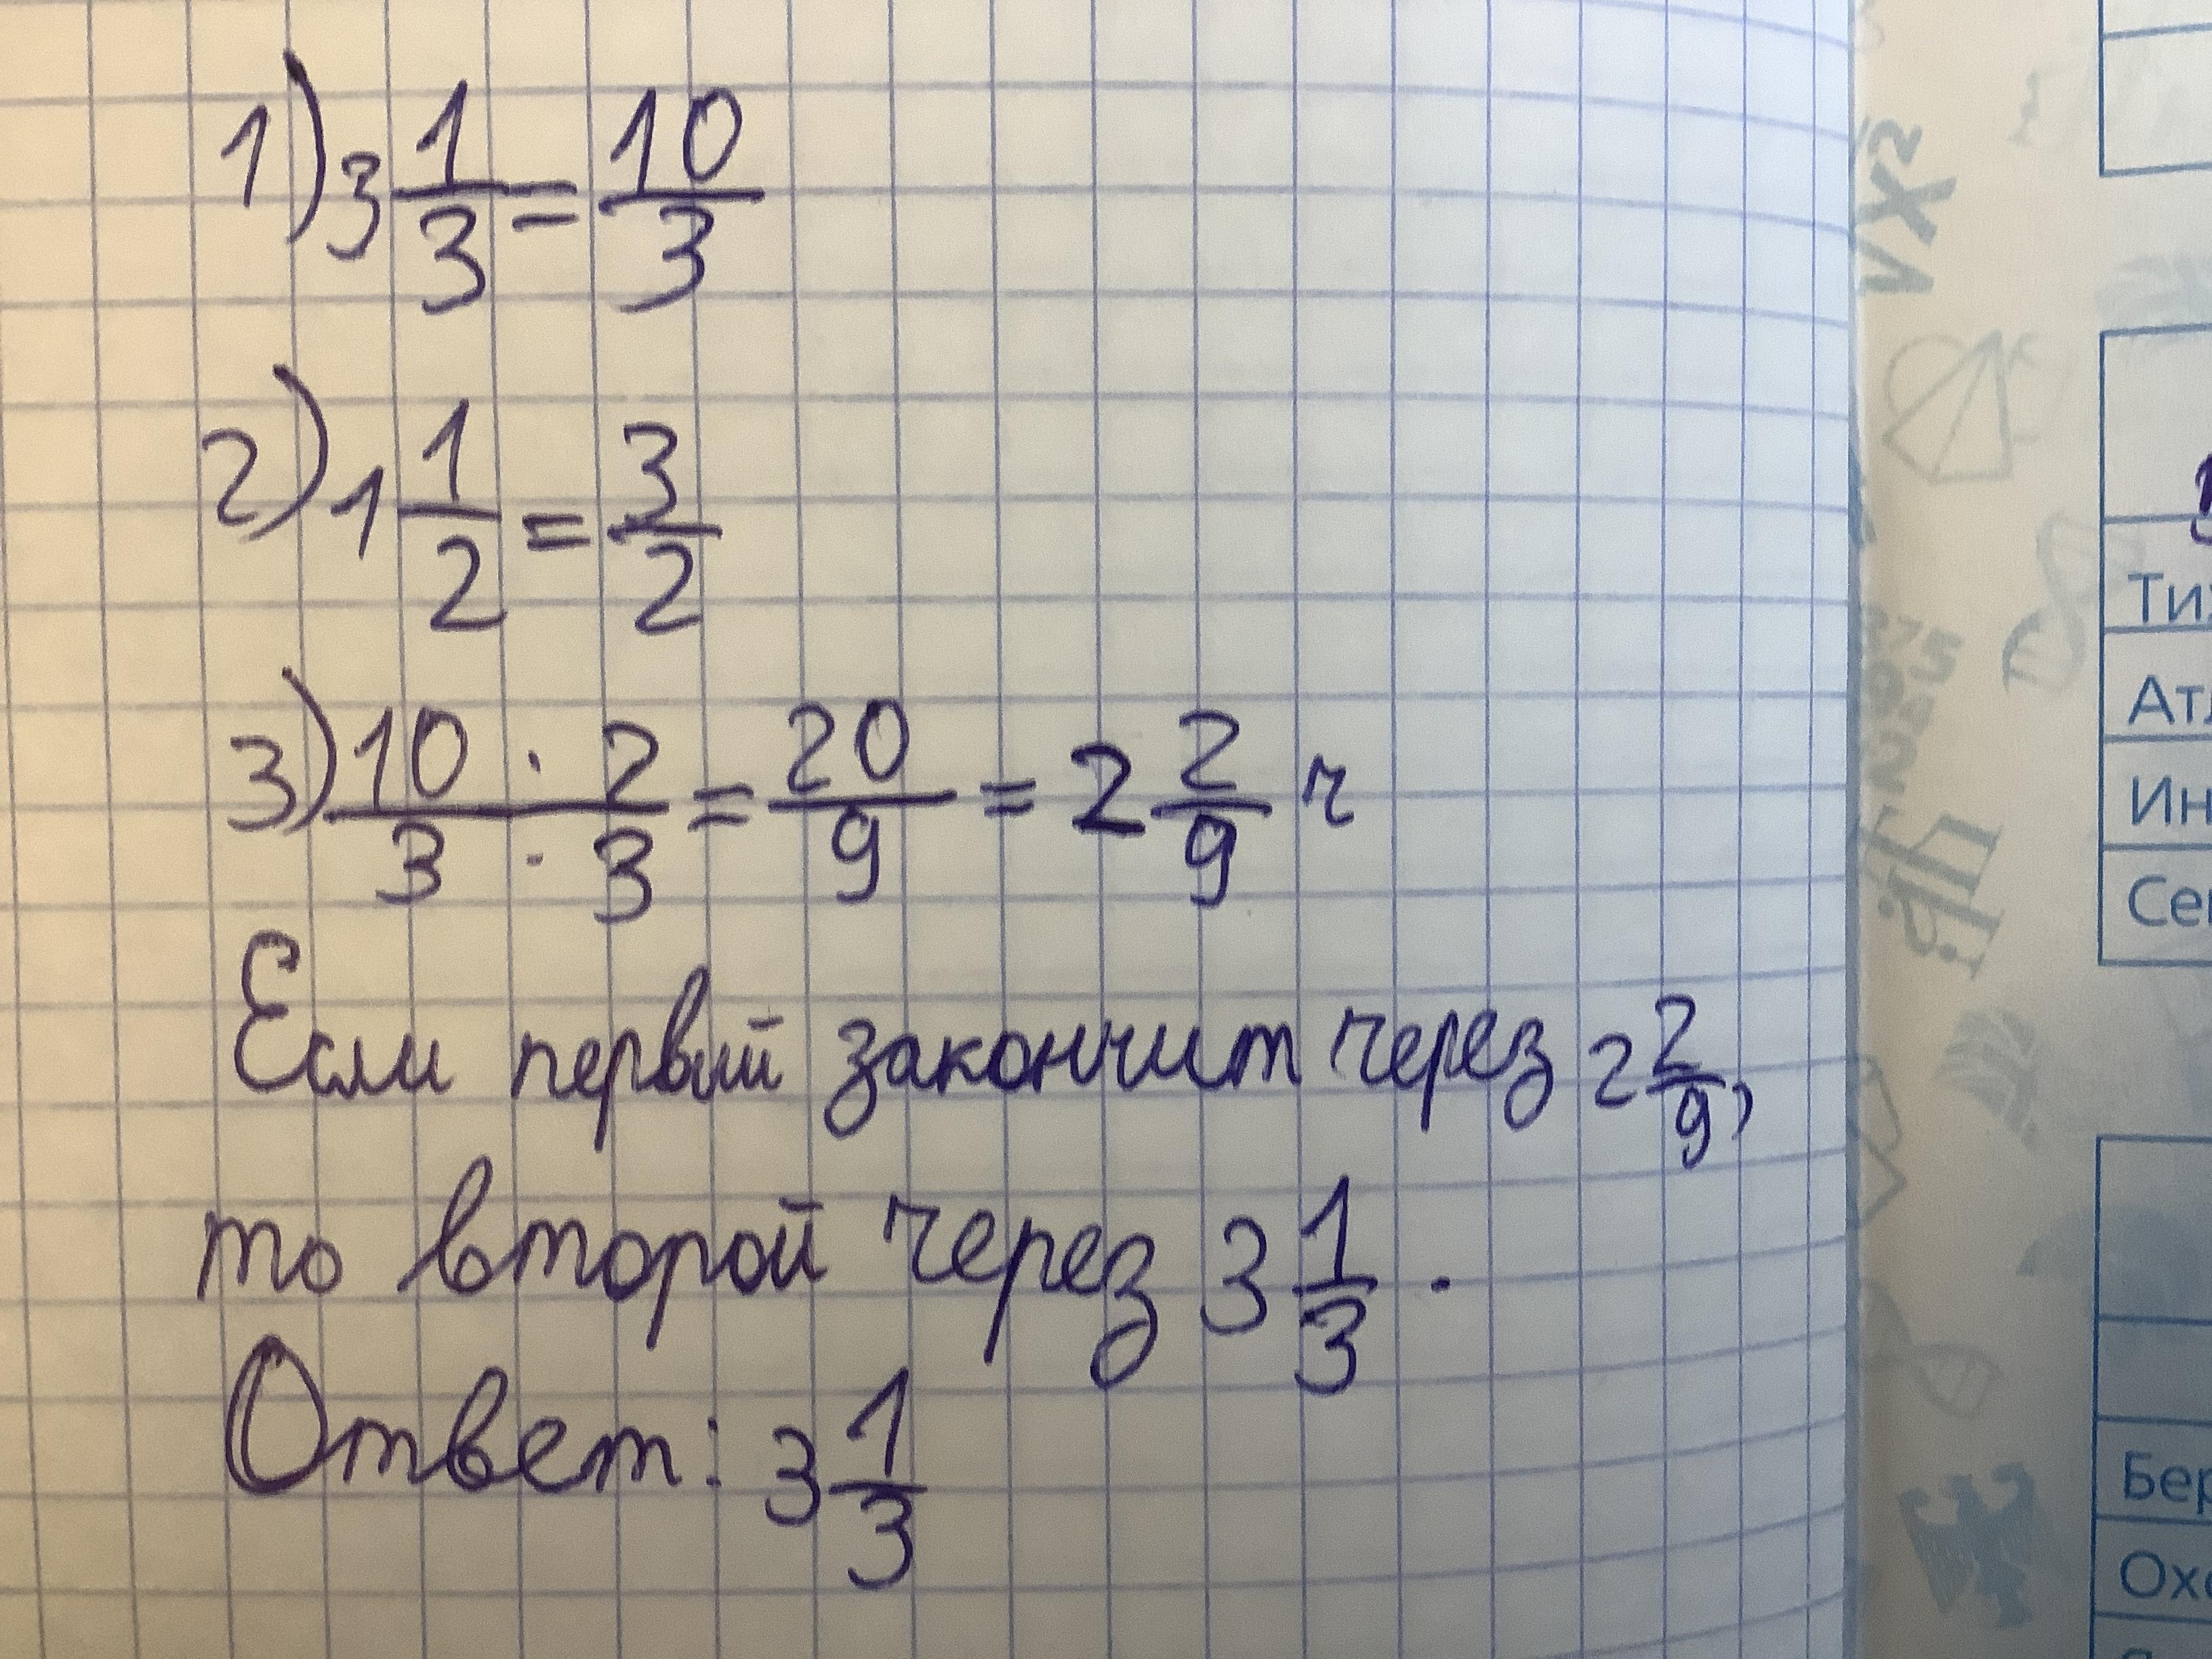 1) 3 1/3 = 10/3
2) 1 1/2 = 3/2
3) 10/3 · 2/3 = 20/9 = 2 2/9 ч
Если первый закончит через 2 2/9,
то второй через 3 1/3 .
Ответ: 3 1/3
Ти
Ат
Ин
Се
Бер
Охо